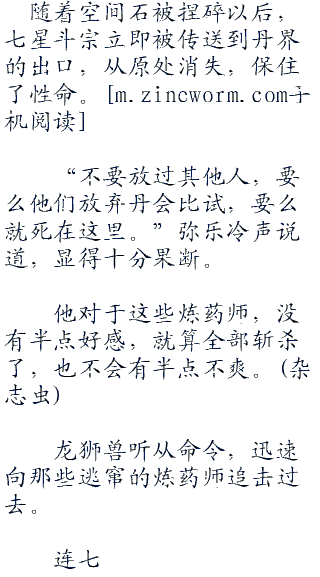 随着空间石被捏碎以后，
七星斗宗立即被传送到丹界
的出口，从原处消失，保住
了性命。[m.zincworm.com手
机阅读]
“不要放过其他人，要
么他们放弃丹会比试，要么
就死在这里。”弥乐冷声说
道，显得十分果断。
他对于这些炼药师，没
有半点好感，就算全部斩杀
了，也不会有半点不爽。(杂
志虫)
龙狮兽听从命令，迅速
向那些逃窜的炼药师追击过
去。
连七